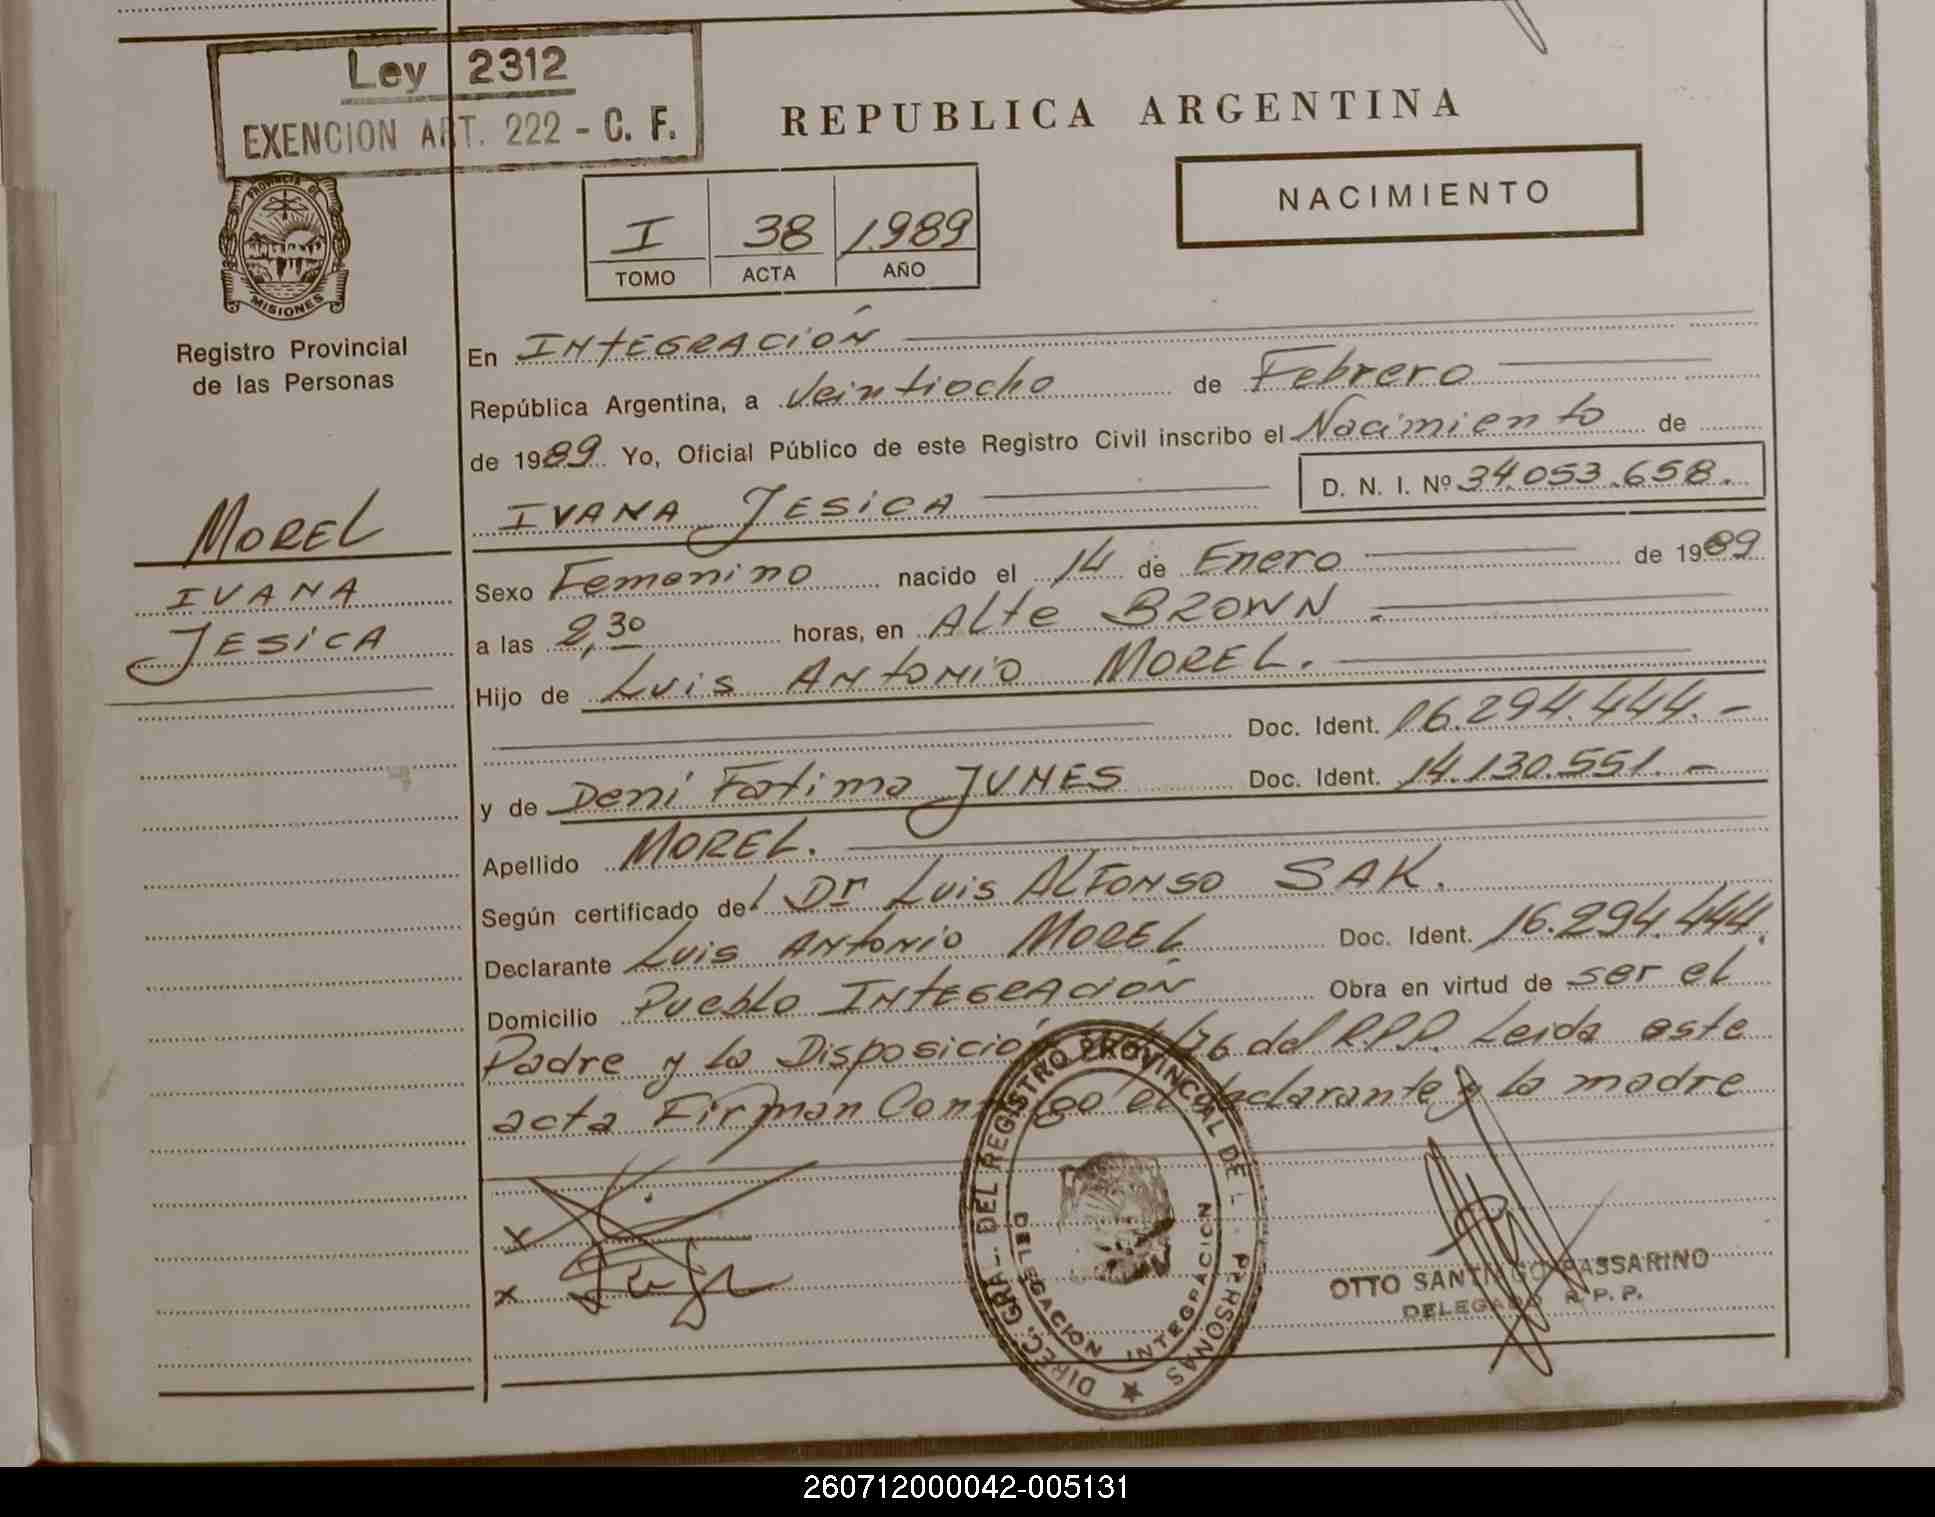 Ley 2312
EXENCION ART. 222 - C. F.
REPUBLICA ARGENTINA
NACIMIENTO
I 38 1.989
TOMO ACTA AÑO
PROVINCIA DE
MISIONES
Registro Provincial
de las Personas
MOREL
IVANA
JESICA
En INTEGRACIÓN
República Argentina, a Veintiocho de Febrero
de 1989 Yo, Oficial Público de este Registro Civil inscribo el Nacimiento de
IVANA JESICA D. N. I. Nº 34.053.658.
Sexo Femenino nacido el 14 de Enero de 1989
a las 2,30 horas, en Alte BROWN.
Hijo de Luis Antonio MOREL.
Doc. Ident. 16.294.444.-
y de Deni Fatima JUNES Doc. Ident. 14.130.551.-
Apellido MOREL.
Según certificado del Dr Luis ALFONSO SAK.
Declarante Luis Antonio MOREL Doc. Ident. 16.294.444.
Domicilio Pueblo INTEGRACIÓN Obra en virtud de ser el
Padre y la Disposición /76 del R.P.P. Leida este
acta Firman Conmigo el declarante y la madre
x
x
DIREC. GRAL. DEL REGISTRO PROVINCIAL DE L. PERSONAS
DELEGACION INTEGRACION
OTTO SANTIAGO PASSARINO
DELEGADO R.P.P.
260712000042-005131